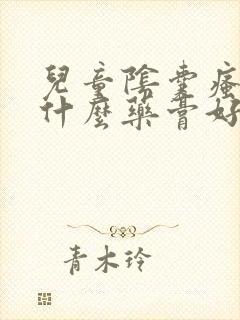 兒童陰囊瘙
什麼藥膏好
青木玲